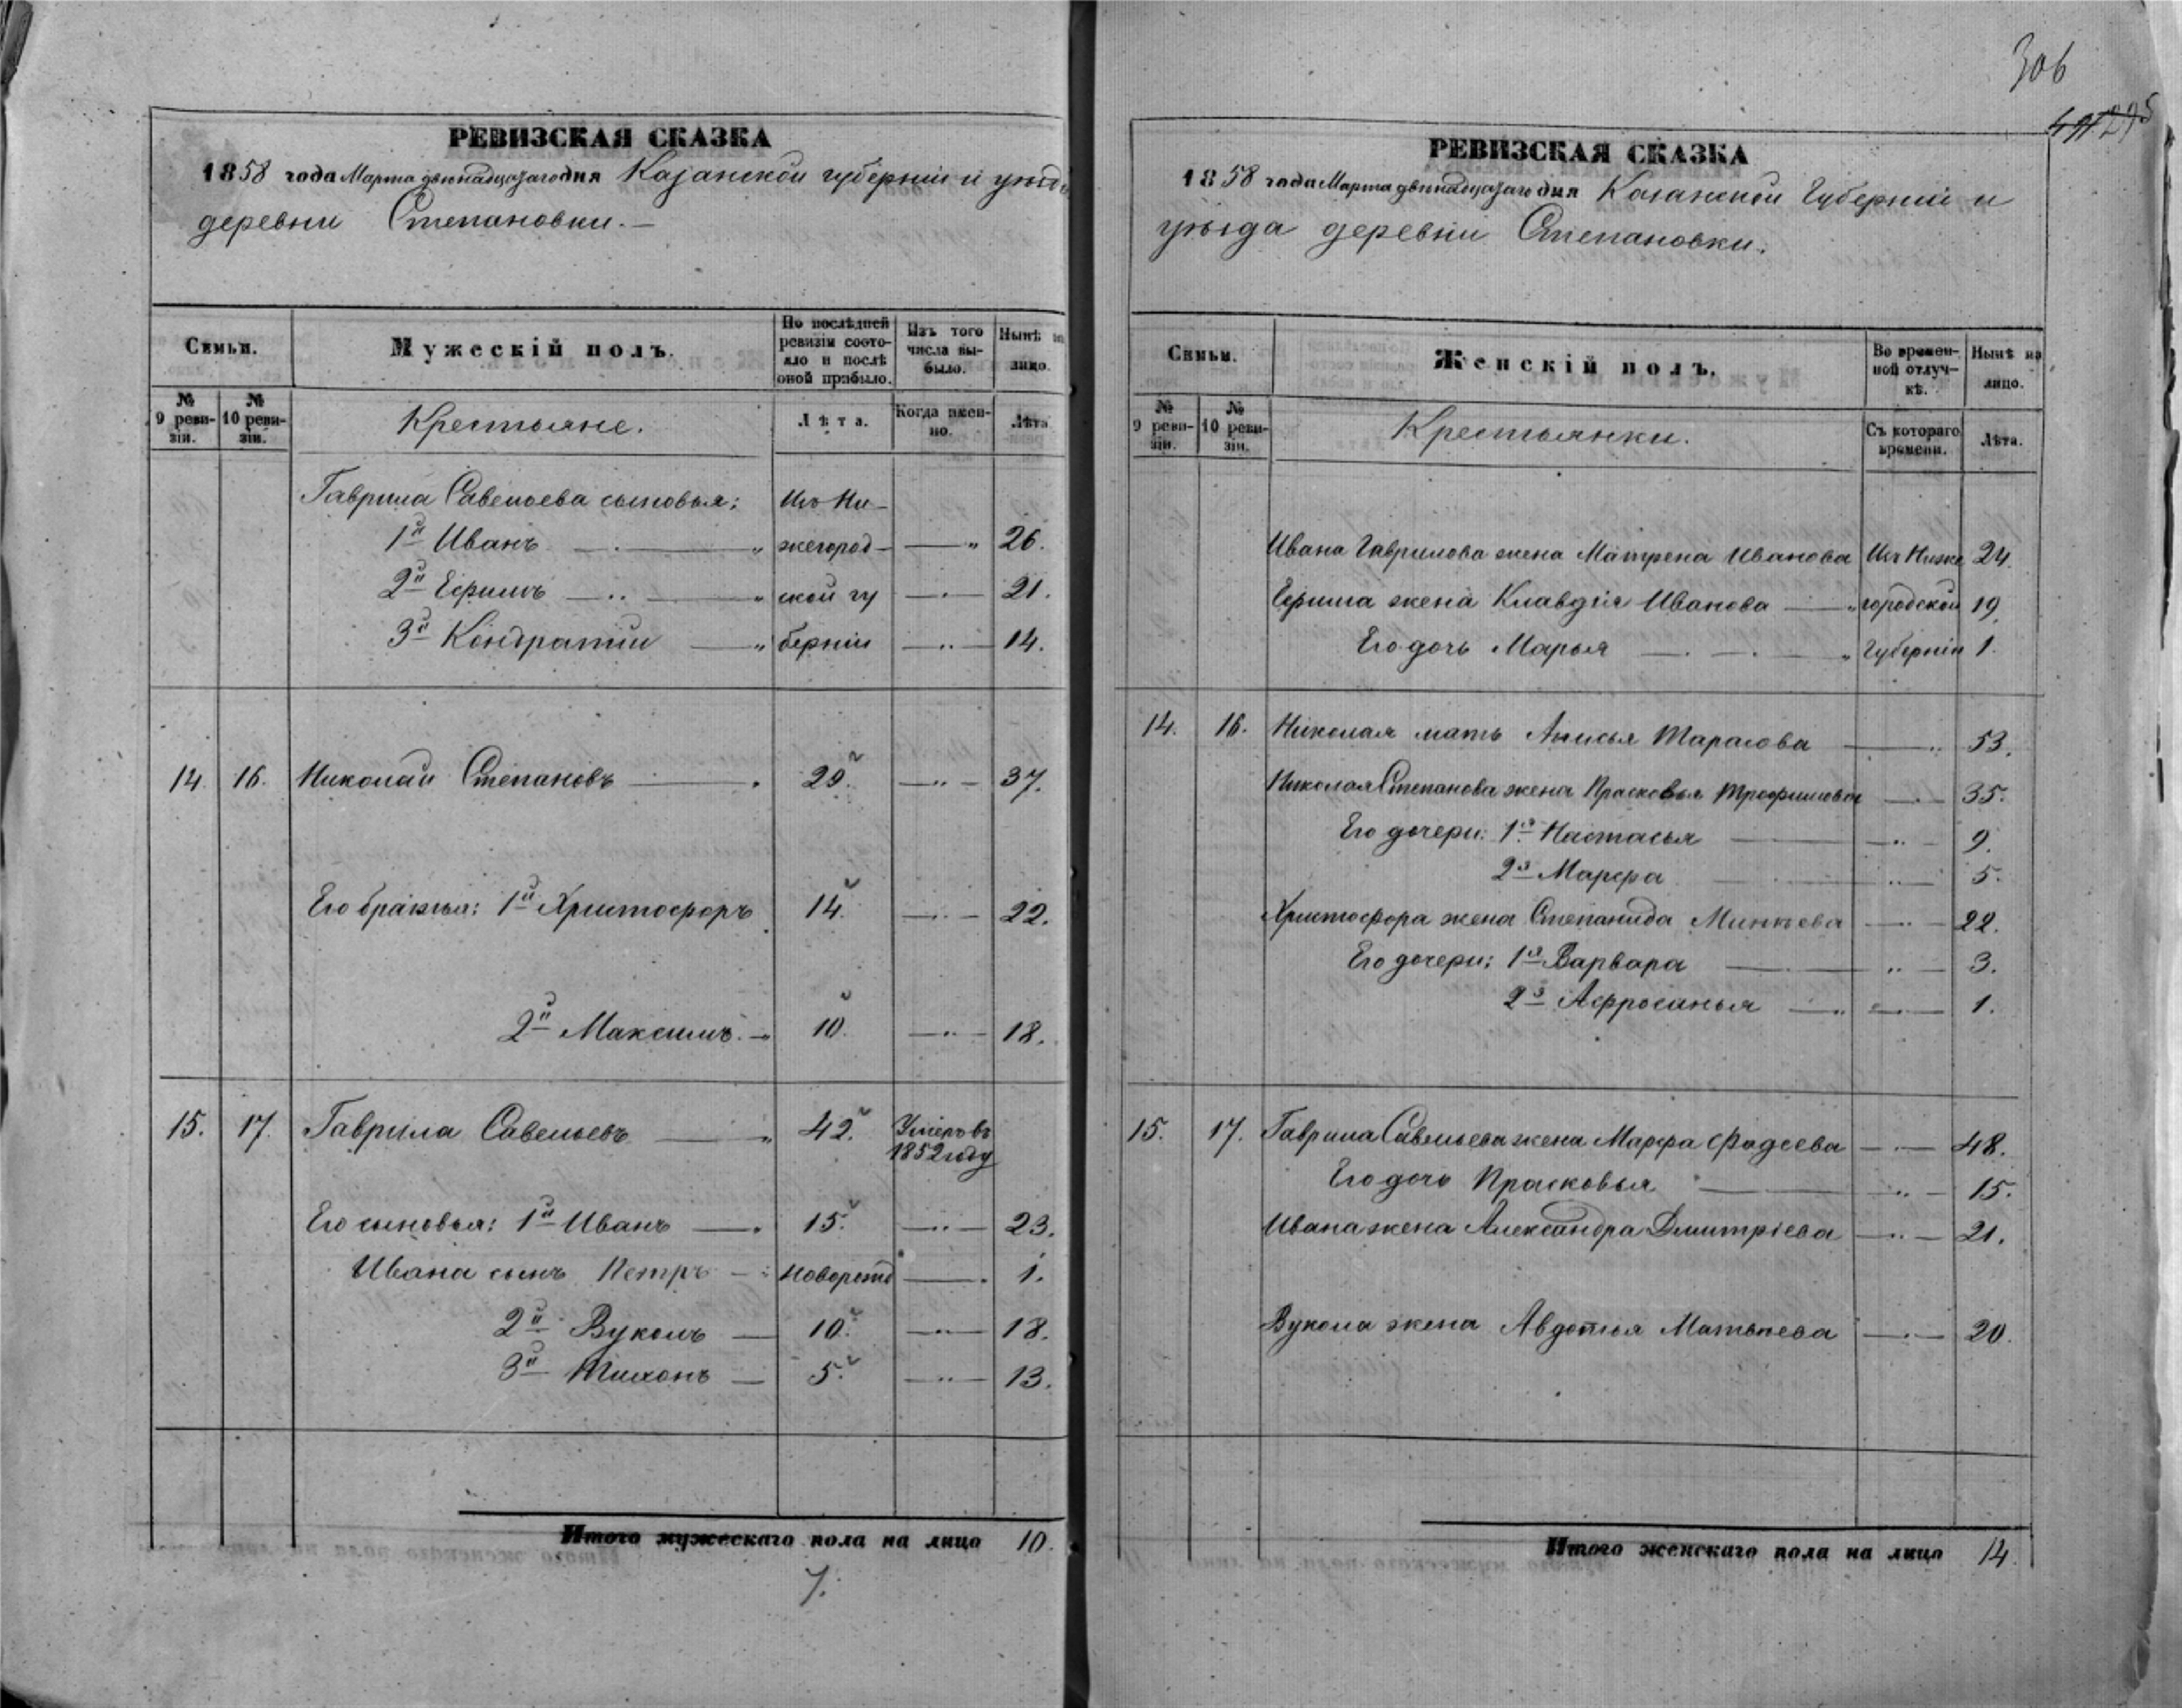 РЕВИЗСКАЯ СКАЗКА
1858 года Марта двѣнадцатаго дня Казанской губерніи и уѣзда
деревни Степановки.—
Семьи.
Мужескій полъ.
По послѣдней ревизіи состояло и послѣ оной прибыло.
Изъ того числа выбыло.
Нынѣ на лицо.
№ 9 ревизіи.
№ 10 ревизіи.
Крестьяне.
Лѣта.
Когда именно.
Лѣта
Гаврила Савельева сыновья; Изъ Ни-
1й Иванъ — „ жегород- — „ 26.
2й Ефимъ — „ ской гу — „ — 21.
3й Кондратій — „ берніи — „ — 14.
14 16. Николай Степановъ — 29. — „ — 37.
Его братья: 1й Христофоръ 14. — „ — 22.
2й Максимъ. — 10. — „ — 18.
15. 17. Гаврила Савельевъ — „ 42. Умеръ въ
1852 году
Его сыновья: 1й Иванъ — 15. — „ — 23.
Ивана сынъ Петръ — новорожд — 1.
2й Вуколъ — 10. — „ — 18.
3й Тихонъ — 5. — „ — 13.
Итого мужескаго пола на лицо 10.
7.
306
РЕВИЗСКАЯ СКАЗКА
1858 года Марта двѣнадцатаго дня Казанской Губерніи и
уѣзда деревни Степановки.
Семьи.
Женскій полъ.
Во временной отлучкѣ.
Нынѣ на лицо.
№ 9 ревизіи.
№ 10 ревизіи.
Крестьянки.
Съ котораго времени.
Лѣта.
Ивана Гаврилова жена Матрена Иванова Изъ Ниже 24.
Ефима жена Клавдія Иванова — „ городской 19.
Его дочь Марья — „ Губерніи 1.
14. 16. Николая мать Анисья Тарасова — „ 53.
Николая Степанова жена Прасковья Трофимова — 35.
Его дочери: 1я Настасья — „ — 9.
2я Марфа — „ — 5.
Христофора жена Степанида Минѣева — „ — 22.
Его дочери: 1я Варвара — „ — 3.
2я Афросанья — „ — 1.
15. 17. Гаврила Савельева жена Марфа Фадеева — „ — 48.
Его дочь Прасковья — „ — 15.
Ивана жена Александра Дмитріева — „ — 21.
Вукола жена Авдотья Матвѣева — „ — 20.
Итого женскаго пола на лицо 14.